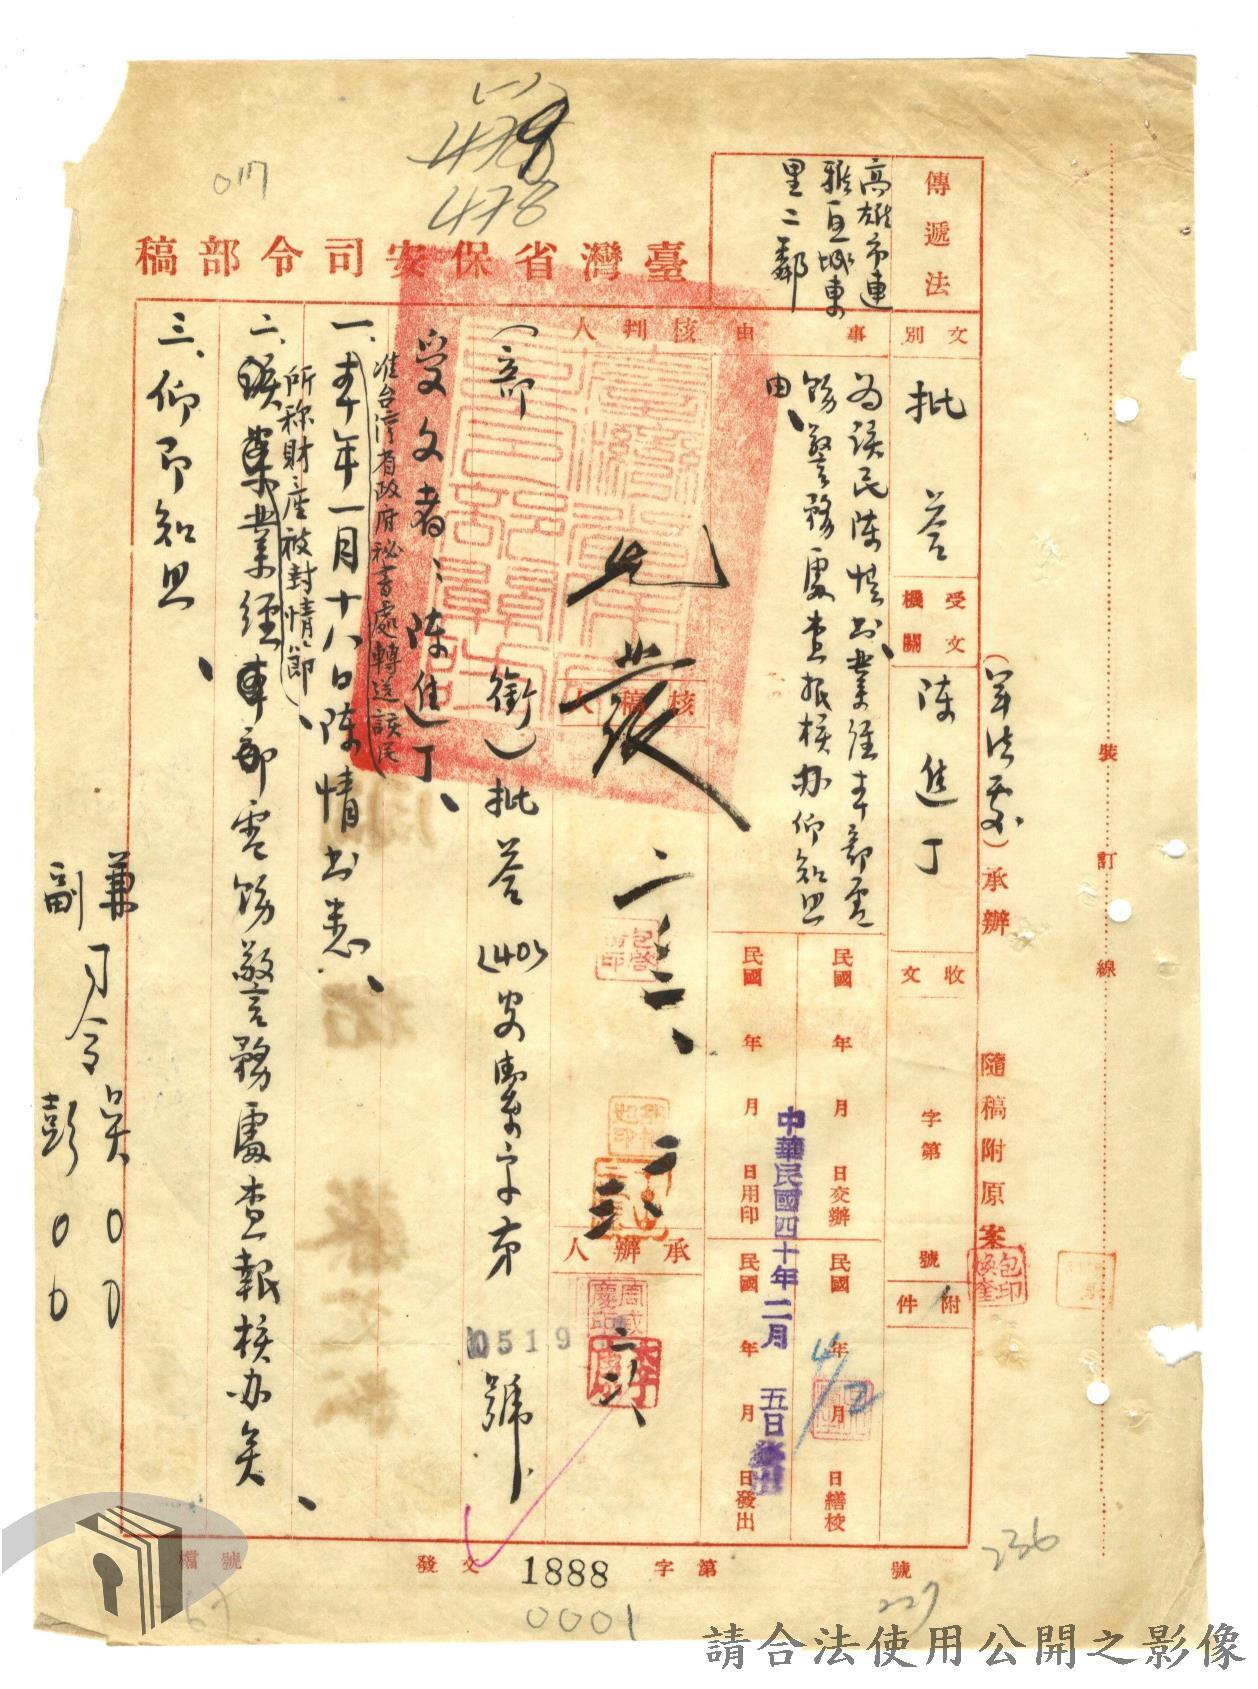 臺灣省保安司令部稿
傳遞法
高雄市連
雅區城東
里二鄰
文別
批答
事由
為該民陳情書業經本部電
飭警務處查報核辦仰知照
由、
受文機關
陳進丁
(軍法處)承辦
隨稿附原案
收文
字第
號
附件
民國 年 月 日交辦
民國 年 月 日繕校
民國 年 月 日用印
民國 年 月 日發出
中華民國四十年二月 五日發出
核判人
核稿人
承辦人
包啓
周咸慶印
包煥奎印
(部銜)批答(40)安潔字第 號
0519
受文者:陳進丁、
准台灣省政府秘書處轉送該民
一、本年一月十八日陳情書悉、
所称財產被封情節、
二、業經本部電飭警務處查報核办矣、
三、仰即知照、
兼司令吳○○
副司令彭○○
裝訂線
發文
字第
1888
號
檔號
0001
478
017
236
227
請合法使用公開之影像